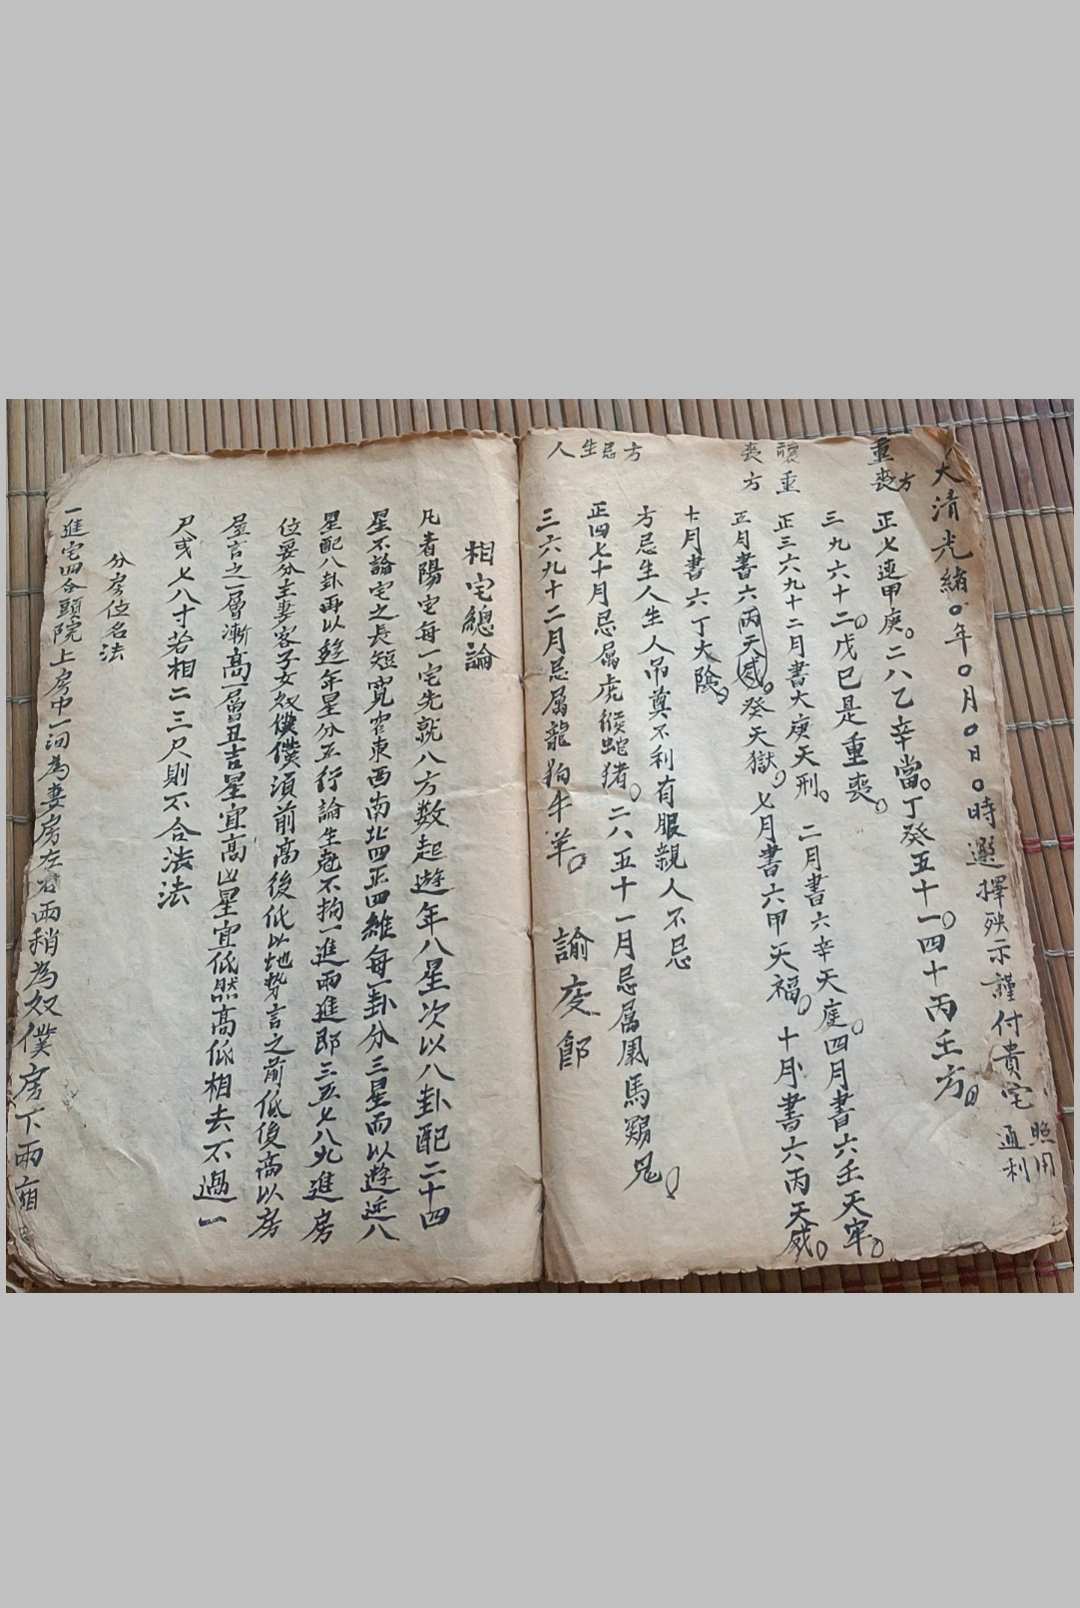 大清光緒〇年〇月〇日〇時選擇殃示謹付貴宅照用通利
重喪方
正七連甲庚。二八乙辛當。丁癸五十一。四十丙壬方。
三九六十二。戊己是重喪。
禳重喪方
正三六九十二月書六庚天刑。二月書六辛天庭。四月書六壬天牢。
五月書六癸天獄。七月書六甲天福。十月書六丙天威。
十月書六丁大陰。
人生忌方
方忌生人生人吊奠不利有服親人不忌
正四七十月忌属虎猴蛇猪。二八五十一月忌属鼠馬鷄兔。
三六九十二月忌属龍狗牛羊。 諭
相宅總論
凡看陽宅每一宅先就八方数起遊年八星次以八卦配二十四
星不論宅之長短寬窄東西南北四正四維每一卦分三星而以遊迊八
星配八卦再以遊年星分五行論生尅不拘一進兩進即三五七八九進房
位要分主妻客子女奴僕僕須前高後低以地勢言之前低後高以房
屋言之一層漸高一層且吉星宜高凶星宜低然高低相去不過一
尺或七八寸若相二三尺則不合法法
分房位名法
一進宅四合頭院上房中一间為妻房左右兩稍為奴僕房下兩廂